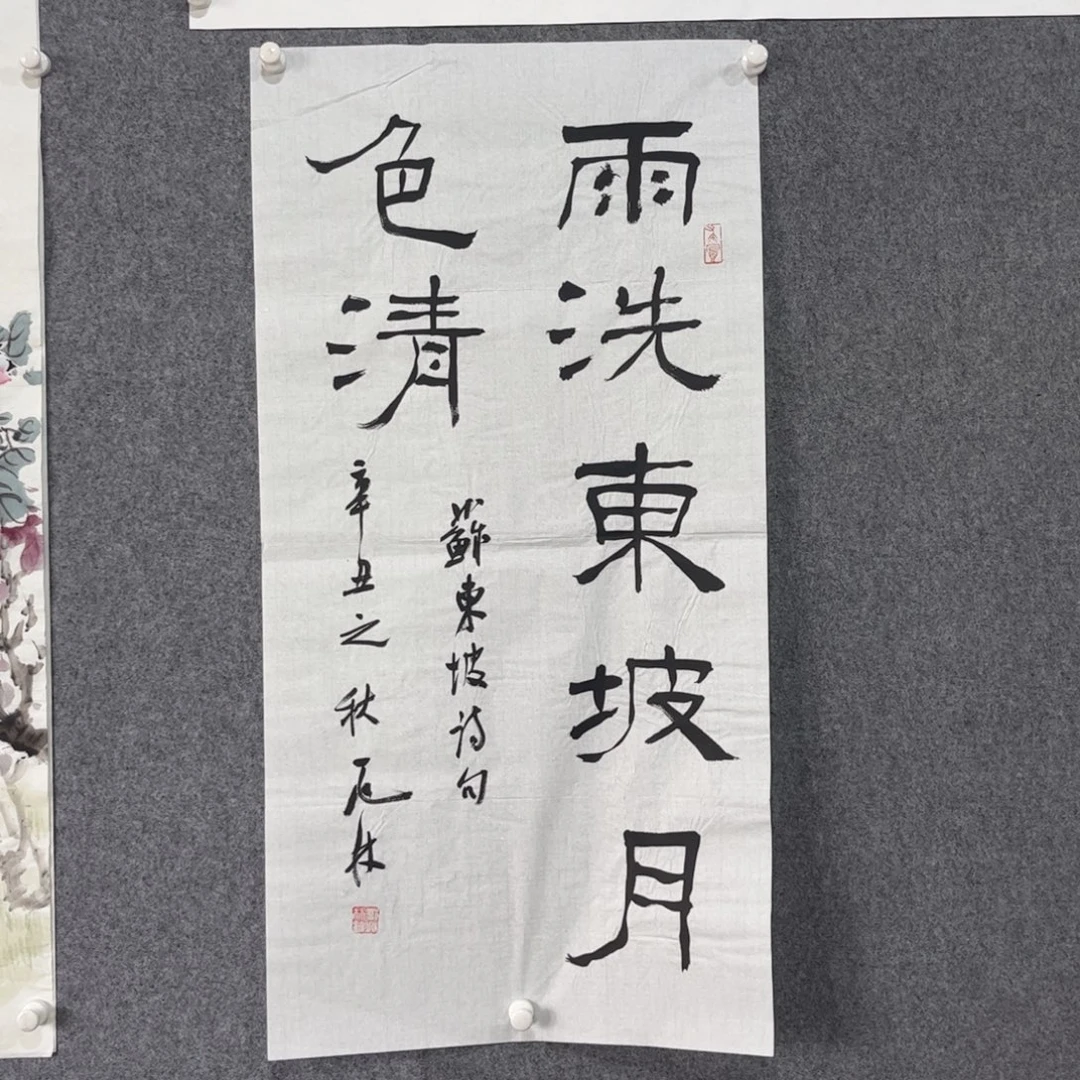 雨洗東坡月
色清
蘇東坡诗句
辛丑之秋